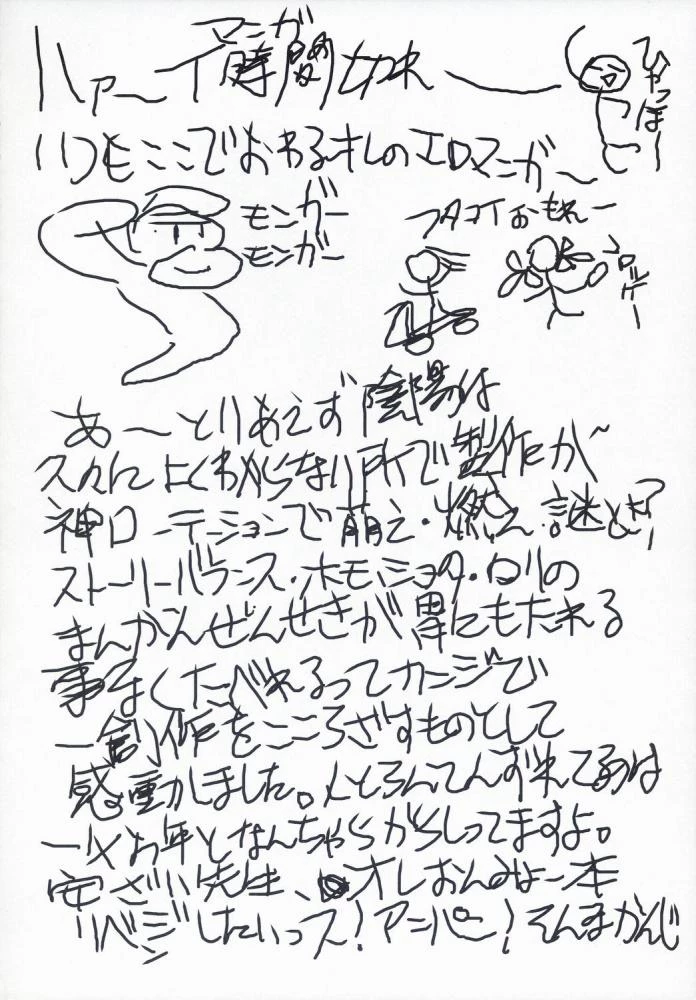 マニガ
ハァーイ時間
ひゃっほー
いつもここでおわるオレのエロマニガー
モンガー
モンガー
フタコイおもれー
ロルケー
あーとりあえず陰陽は
久々によくわからない所で製作が
神ローテーションで萌え・燃え・謎とき?
ストーリーバランス・ホモ・ショタ・ロリの
まんかんぜんせきが胃にもたれる
事なくたべれるってカーンジで
一創作をこころざすものとして
感動しました。メとろんてんずれてるのは
一メお年となんちゃらがらしってますよ。
安ざい先生、オレおんみょー本
リベンジしたいっス!アニパー!そんまかんじ